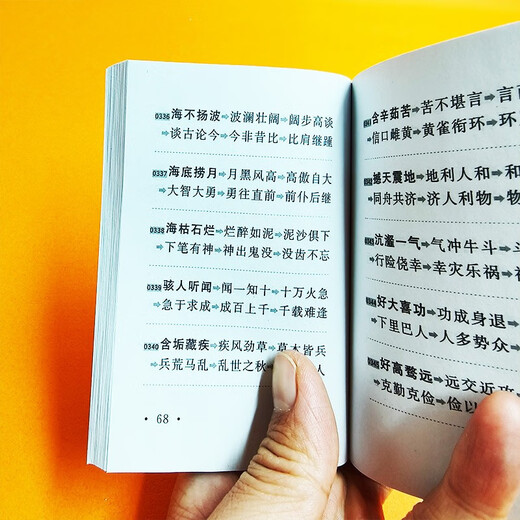 0336海不扬波➡波澜壮阔➡阔步高谈
➡谈古论今➡今非昔比➡比肩继踵
0337海底捞月➡月黑风高➡高傲自大
➡大智大勇➡勇往直前➡前仆后继
0338海枯石烂➡烂醉如泥➡泥沙俱下
➡下笔有神➡神出鬼没➡没齿不忘
0339骇人听闻➡闻一知十➡十万火急
➡急于求成➡成百上千➡千载难逢
0340含垢藏疾➡疾风劲草➡草木皆兵
➡兵荒马乱➡乱世之秋➡ 人
• 68 •
含辛茹苦➡苦不堪言➡言
➡信口雌黄➡黄雀衔环➡环
撼天震地➡地利人和➡和
➡同舟共济➡济人利物➡物
沆瀣一气➡气冲牛斗➡斗
➡行险侥幸➡幸灾乐祸➡祸
好大喜功➡功成身退➡
➡下里巴人➡人多势众➡
好高骛远➡远交近攻
➡克勤克俭➡俭以